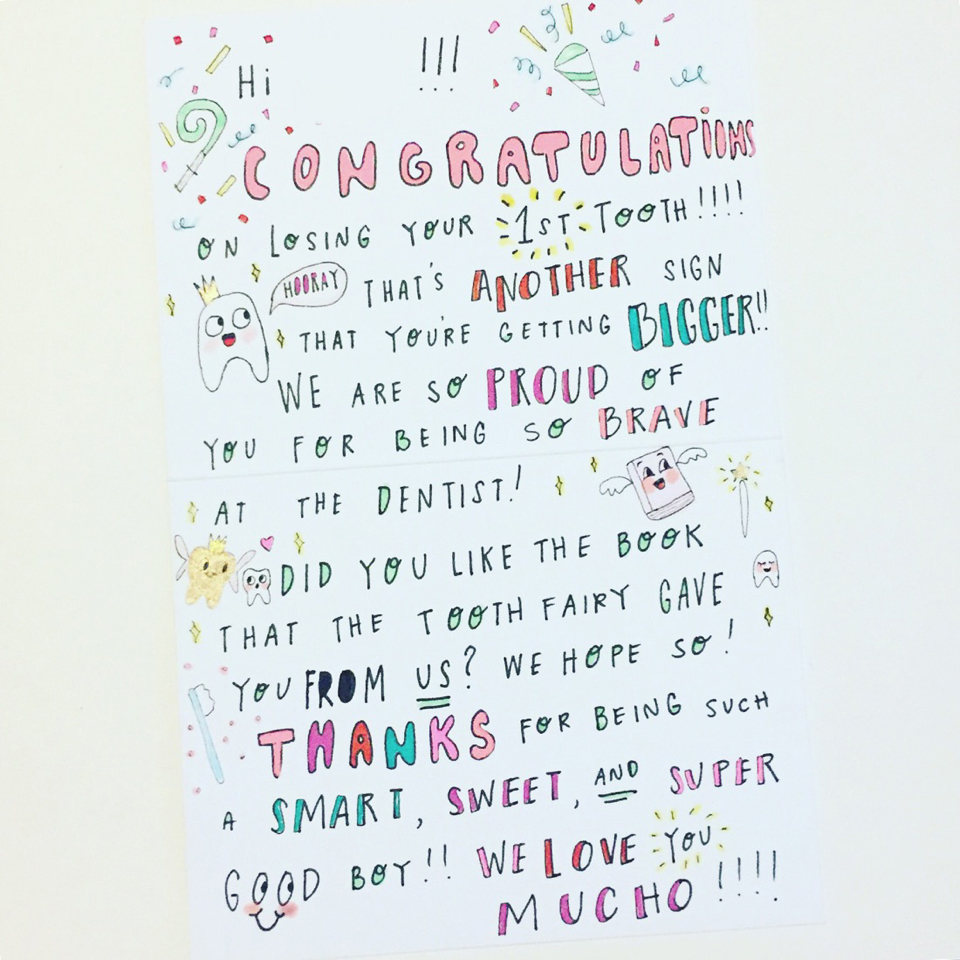 Hi !!!
CONGRATULATiONS
ON LOSING YOUR 1ST TOOTH!!!!
HOORAY
THAT'S ANOTHER SIGN
THAT YOU'RE GETTING BIGGER!!
WE ARE SO PROUD OF
YOU FOR BEING SO BRAVE
AT THE DENTIST!
DID YOU LIKE THE BOOK
THAT THE TOOTH FAIRY GAVE
YOU FROM US? WE HOPE SO!
THANKS FOR BEING SUCH
A SMART, SWEET, AND SUPER
GOOD BOY!! WE LOVE YOU
MUCHO !!!!